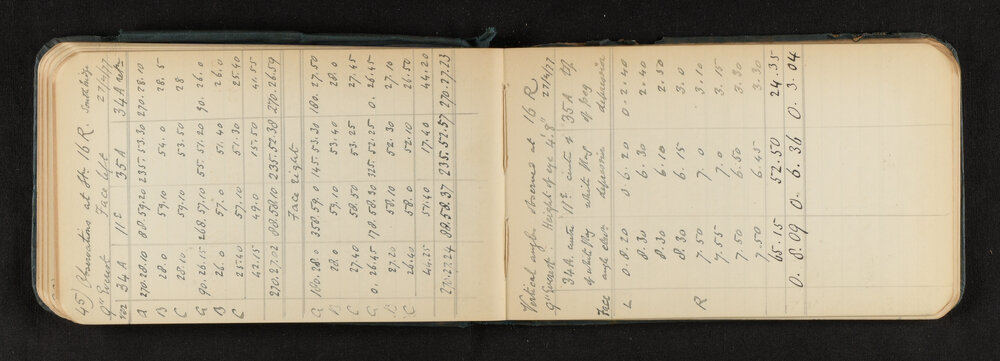 45) Observations at St. 16 R. Smoothridge
9" Everest Face left 27/4/77
ver 34 A 11E 35 A 34 A retn
A 270.28.10 88.59.20 235.53.30 270.28.10
B 28.0 59.10 54.0 28.5
C 28.10 59.10 53.50 28
A 90.26.15 268.57.10 55.51.20 90.26.0
B 26.0 57.0 51.40 26.0
C 25.40 57.10 51.30 25.40
42.15 49.0 15.50 41.55
270.27.02 88.58.10 235.52.38 270.26.59
Face right
A 180.28.0 358.59.0 145.53.30 180.27.50
B 28.0 59.10 53.40 28.0
C 27.40 58.50 53.25 27.45
A 0.26.45 178.58.30 325.52.25 0.26.45
B 27.20 58.10 52.30 27.10
C 26.40 58.0 52.10 26.50
44.25 51.40 17.40 44.20
270.27.24 88.58.37 235.52.57 270.27.23
Vertical angles observed at 16 R
9" Everest. Height of eye 4'.8" 27/4/77
34 A. centre 11E centre of 35 A top
of white flag white flag of peg
Face angle elevn depression depression
L 0.8.20 0.6.20 0.2.40
8.30 6.20 2.40
8.30 6.10 2.50
8.30 6.15 3.0
R 7.50 7.0 3.10
7.55 7.0 3.15
7.50 6.50 3.30
7.50 6.45 3.30
65.15 52.50 24.35
0.8.09 0.6.36 0.3.04